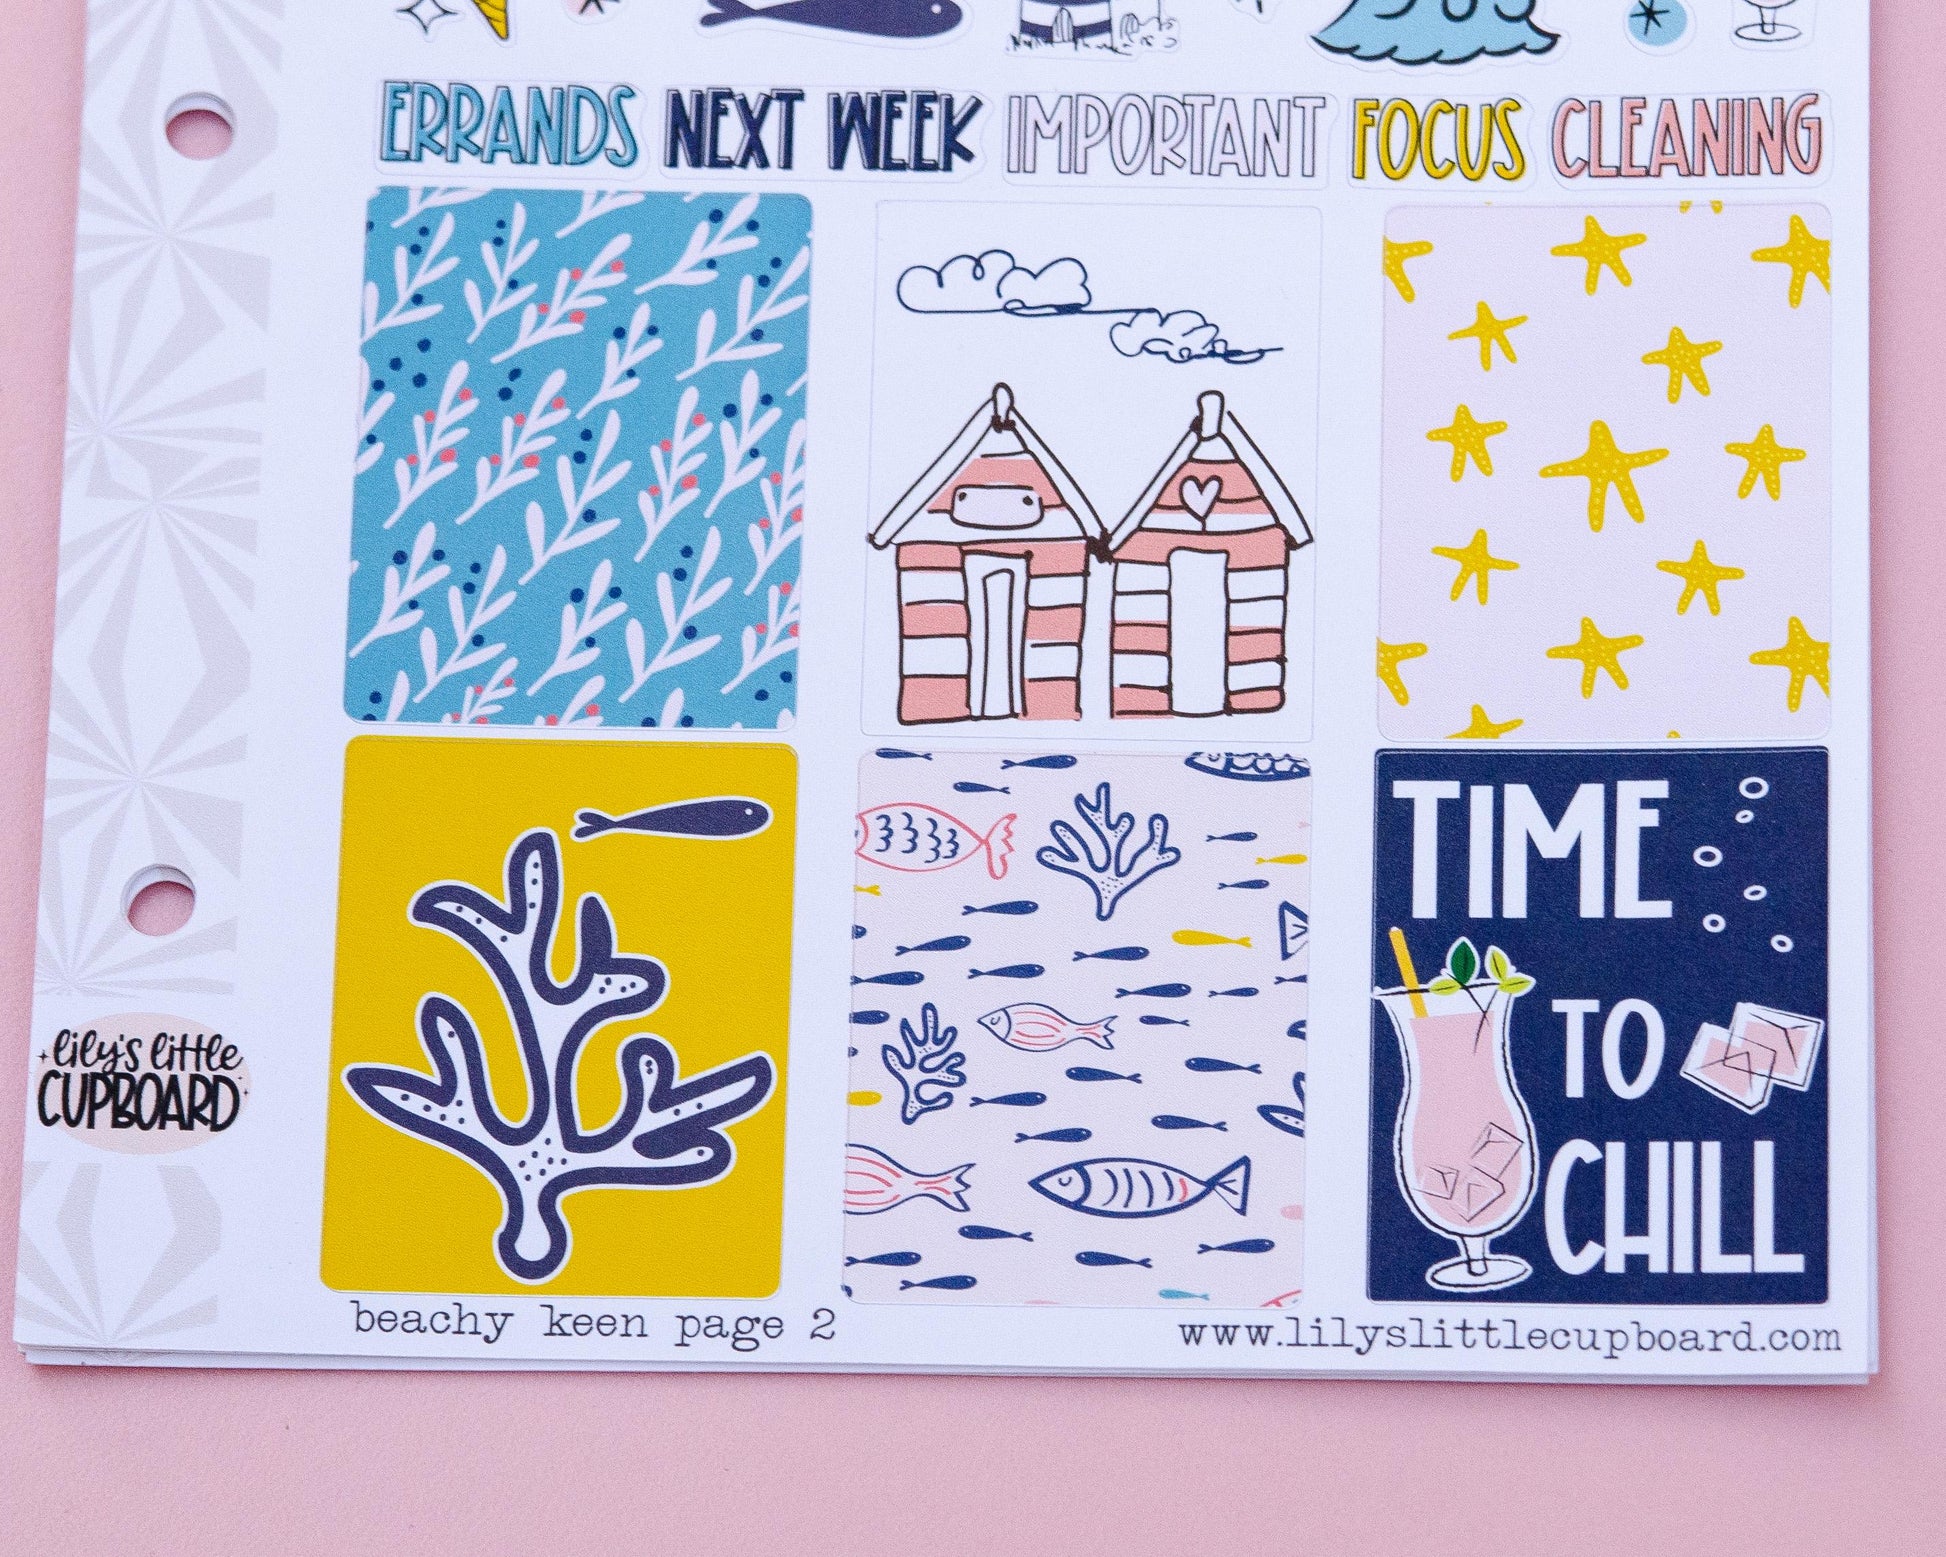 ERRANDS NEXT WEEK IMPORTANT FOCUS CLEANING
TIME
TO
CHILL
lily's little
CUPBOARD
beachy keen page 2
www.lilyslittlecupboard.com